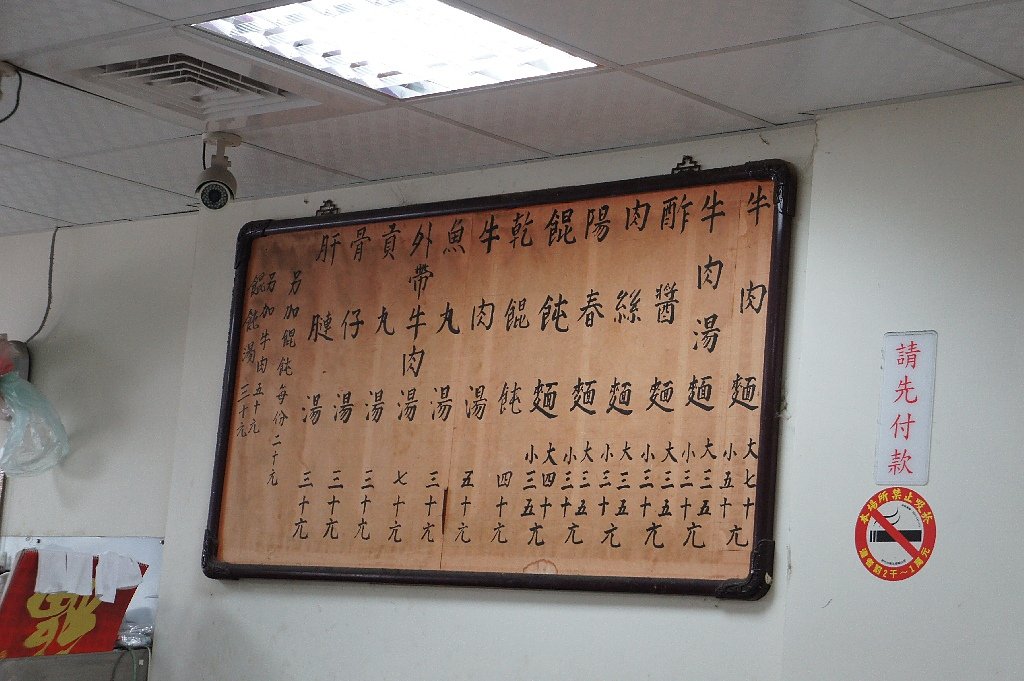 牛肉麵 大七十 小五十 元
牛肉湯麵 大三五 小三十 元
酢醬麵 大三五 小三十 元
肉絲麵 大三五 小三十 元
陽春麵 大三五 小三十 元
餛飩麵 大四十 小三五 元
乾餛飩 四十元
牛肉湯 五十元
魚丸湯 三十元
外帶牛肉湯 七十元
貢丸湯 三十元
骨仔湯 三十元
肝腱湯 三十元
另加餛飩每份二十元
另加牛肉五十元
餛飩湯 三十元
請先付款
本場所禁止吸菸
違者罰2千~1萬元